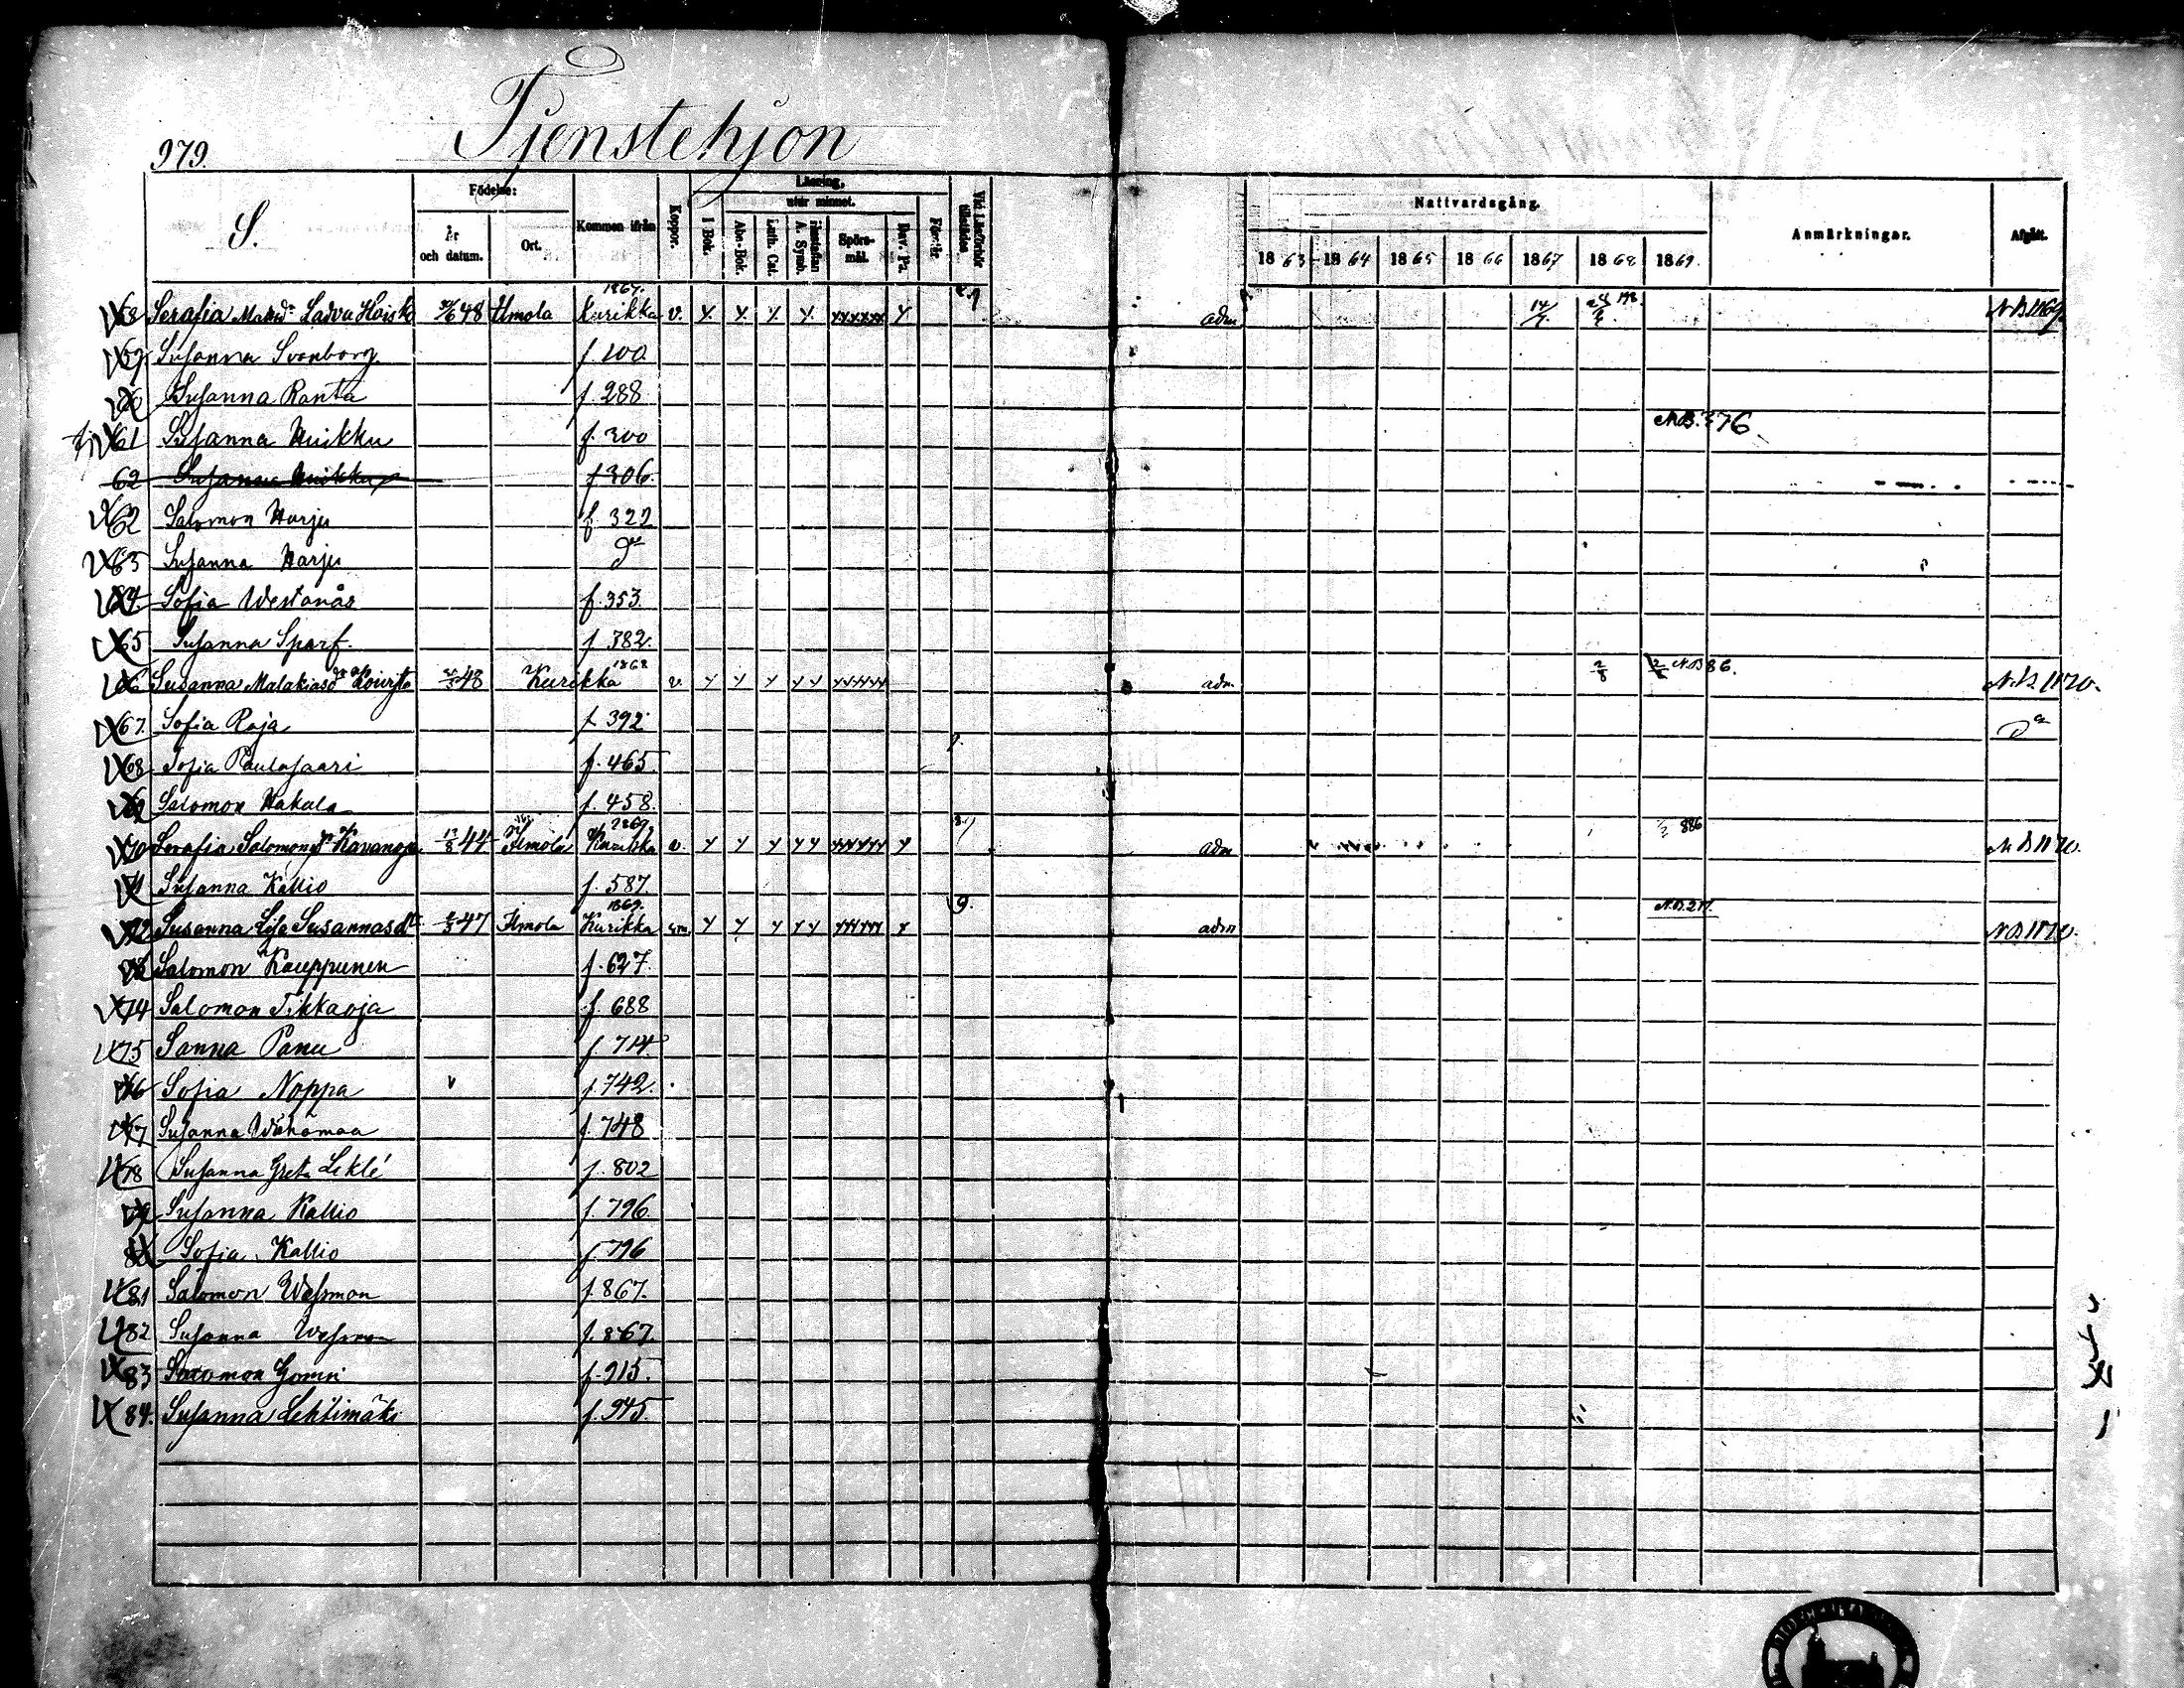 Tjenstehjon
979.
S. Födelse: år och datum. Ort. Kommen ifrån Koppor. Läsning, utur minnet. I Bok. Abc-Bok. Luth. Cat. A. Symb. Spörs-mål. Dav. Ps. Förstår. Nattvardsgång. 1863 1864 1865 1866 1867 1868 1869. Anmärkningar. Afgått.
58 Serafia Ladva 48 Ilmola 1867. Kurikka v. adm
59 Susanna Svanborg f. 100
Susanna Ranta f. 288
61 Susanna Huikku f. 300 N.B. 376
62 Susanna Huikku f 306.
62 Salomon Harju f. 322
63 Susanna Harju
64. Sofia Westanås f. 353.
65 Susanna Sparf. f 382.
66 Susanna Malakiasdr 48 Kurikka 1868 v. adm. 2/8 N.B 86. N.B. 1870.
67. Sofia Raja f. 392
68 Sofia Paulasaari f. 465
69 Salomon Hakala f. 458.
70 Serafia Salomonsdr Kavanoja 44 Ilmola 1867 Kurikka v. adm 886 N B 1870.
71 Susanna Kallio f. 587.
72 Susanna Lisa Susannasdtr 47 Ilmola 1869. Kurikka adm N.B. 217. N B 1870.
73 Salomon Kauppinen f. 627.
74 Salomon Tikkaoja f. 688
75 Sanna Panu f. 714
76 Sofia Noppa f. 742.
77 Susanna Wähämaa f. 748
78 Susanna Greta Leklé f. 802
79 Susanna Kallio f. 796
80 Sofia Kallio f 796
81 Salomon Wesman f. 867.
82 Susanna Wesman f. 867
83 Salomon f. 915.
84. Susanna Lehtimäki f. 945.